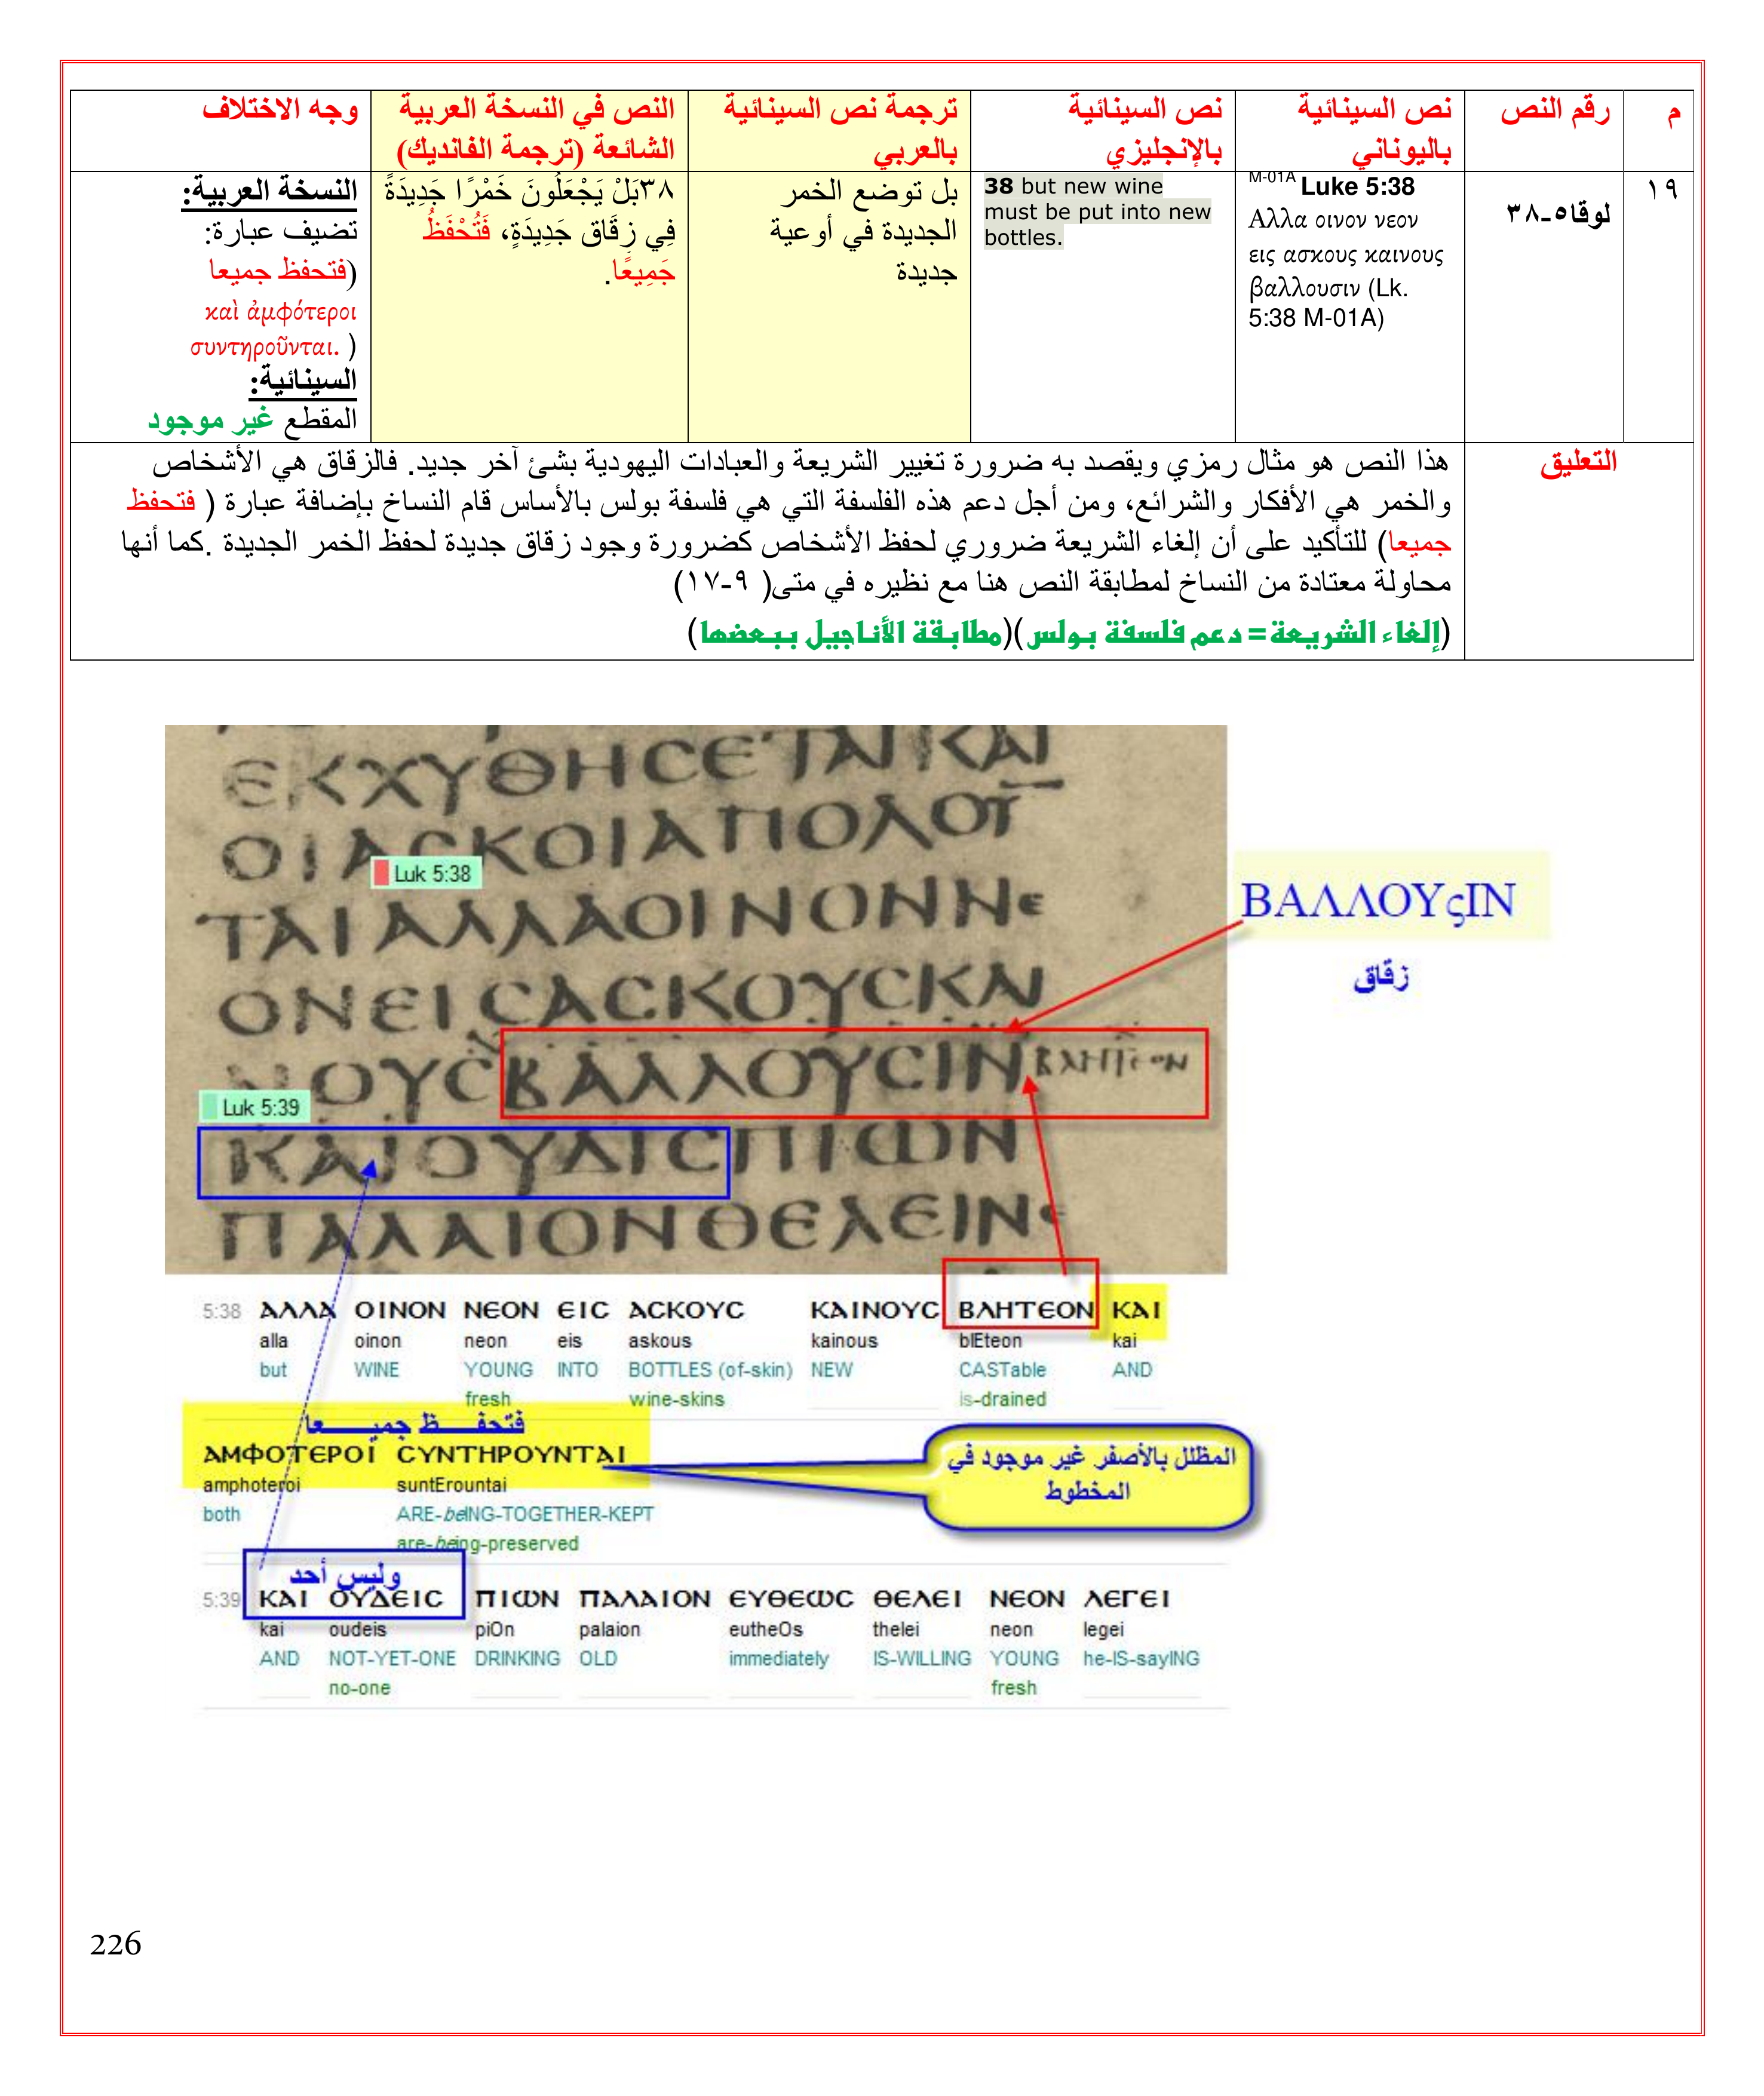 م
رقم النص
نص السينائية
باليوناني
نص السينائية
بالإنجليزي
ترجمة نص السينائية
بالعربي
النص في النسخة العربية
الشائعة (ترجمة الفانديك)
وجه الاختلاف
١٩
لوقا٥-٣٨
M-01A Luke 5:38
Αλλα οινον νεον
εις ασκους καινους
βαλλουσιν (Lk.
5:38 M-01A)
38 but new wine
must be put into new
bottles.
بل توضع الخمر
الجديدة في أوعية
جديدة
٣٨بَلْ يَجْعَلُونَ خَمْرًا جَدِيدَةً
فِي زِقَاق جَدِيدَةٍ، فَتُحْفَظُ
جَمِيعًا.
النسخة العربية:
تضيف عبارة:
(فتحفظ جميعا
καὶ ἀμφότεροι
συντηροῦνται. )
السينائية:
المقطع غير موجود
التعليق
هذا النص هو مثال رمزي ويقصد به ضرورة تغيير الشريعة والعبادات اليهودية بشئ آخر جديد. فالزقاق هي الأشخاص
والخمر هي الأفكار والشرائع، ومن أجل دعم هذه الفلسفة التي هي فلسفة بولس بالأساس قام النساخ بإضافة عبارة ( فتحفظ
جميعا) للتأكيد على أن إلغاء الشريعة ضروري لحفظ الأشخاص كضرورة وجود زقاق جديدة لحفظ الخمر الجديدة .كما أنها
محاولة معتادة من النساخ لمطابقة النص هنا مع نظيره في متى( ٩-١٧)
(إلغاء الشريعة= دعم فلسفة بولس)(مطابقة الأناجيل ببعضها)
ΕΚΧΥΘΗСΕΤΑΙ ΚΑΙ
ΟΙΑСΚΟΙΑΠΟΛΟΥ
Luk 5:38
ΤΑΙΑΛΛΑΟΙΝΟΝΝΕ
ΟΝΕΙСΑСΚΟΥСΚΑΙ
ΝΟΥСΒΑΛΛΟΥСΙΝ ΒΛΗΤΕΟΝ
Luk 5:39
ΚΑΙΟΥΔΙСΠΙΩΝ
ΠΑΛΑΙΟΝΘΕΛΕΙΝΕ
ΒΑΛΛΟΥςΙΝ
زقاق
5:38 ΑΛΛΑ ΟΙΝΟΝ ΝΕΟΝ ΕΙС ΑСΚΟΥС ΚΑΙΝΟΥС ΒΛΗΤΕΟΝ ΚΑΙ
alla oinon neon eis askous kainous blEteon kai
but WINE YOUNG INTO BOTTLES (of-skin) NEW CASTable AND
fresh wine-skins is-drained
فتحفـــظ جميـــــعا
ΑΜΦΟΤΕΡΟΙ СΥΝΤΗΡΟΥΝΤΑΙ
amphoteroi suntErountai
both ARE-beING-TOGETHER-KEPT
are-being-preserved
المظلل بالأصفر غير موجود في
المخطوط
وليس أحد
5:39 ΚΑΙ ΟΥΔΕΙС ΠΙΩΝ ΠΑΛΑΙΟΝ ΕΥΘΕΩС ΘΕΛΕΙ ΝΕΟΝ ΛΕΓΕΙ
kai oudeis piOn palaion eutheOs thelei neon legei
AND NOT-YET-ONE DRINKING OLD immediately IS-WILLING YOUNG he-IS-sayING
no-one fresh
226